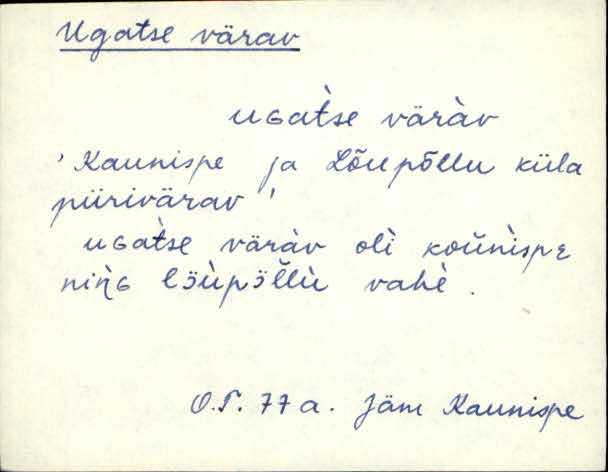 Ugatse värav
uɢàtse väràv
' Kaunispe ja Lõupõllu küla
piirivärav '
uɢàtse väràv oli koùnìspᴇ
niŋ̀ɢ lɔ̈ùpɔ̈l̆lù vahè .
O.T. 77 a. Jäm Kaunispe